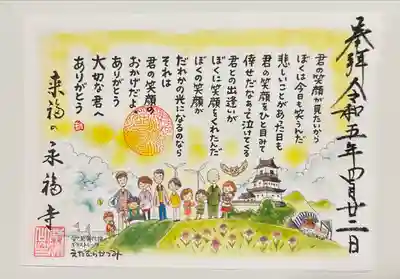 奉拝 令和五年四月廿二日
君の笑顔が見たいから
ぼくは今日も笑うんだ
悲しいことがあった日も
君の笑顔をひと目みて
倖せだなあって泣けてくる
君との出逢いが
ぼくに笑顔をくれたんだ
ぼくの笑顔が
だれかの光になるのなら
それは
君の笑顔の
おかげだよ
ありがとう
大切な君へ
ありがとう
来福の永福寺
えだむらかづみ